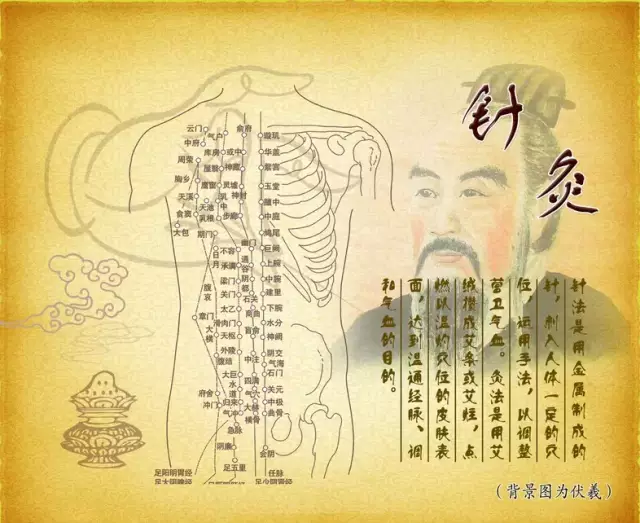 针灸
针法是用金属制成的
针，刺入人体一定的穴
位，运用手法，以调整
营卫气血。灸法是用艾
绒搓成艾条或艾炷，点
燃以温灼穴位的皮肤表
面，达到温通经脉、调
和气血的目的。
（背景图为伏羲）
云门
气户
俞府
璇玑
中府
库房
或中
华盖
周荣
屋翳
神藏
紫宫
胸乡
膺窗
灵墟
玉堂
天溪
乳中
神封
膻中
食窦
天池
乳根
步廊
中庭
大包
期门
鸠尾
幽门
巨阙
日月
不容
通谷
上脘
承满
中脘
腹哀
梁门
阴都
建里
关门
石关
下脘
章门
太乙
商曲
水分
大横
滑肉门
肓俞
神阙
天枢
外陵
中注
阴交
腹结
气海
大巨
四满
石门
府舍
水道
气穴
关元
冲门
归来
大赫
中极
气冲
横骨
曲骨
急脉
阴廉
会阴
足五里
足阳明胃经
任脉
足太阴脾经
足少阴肾经